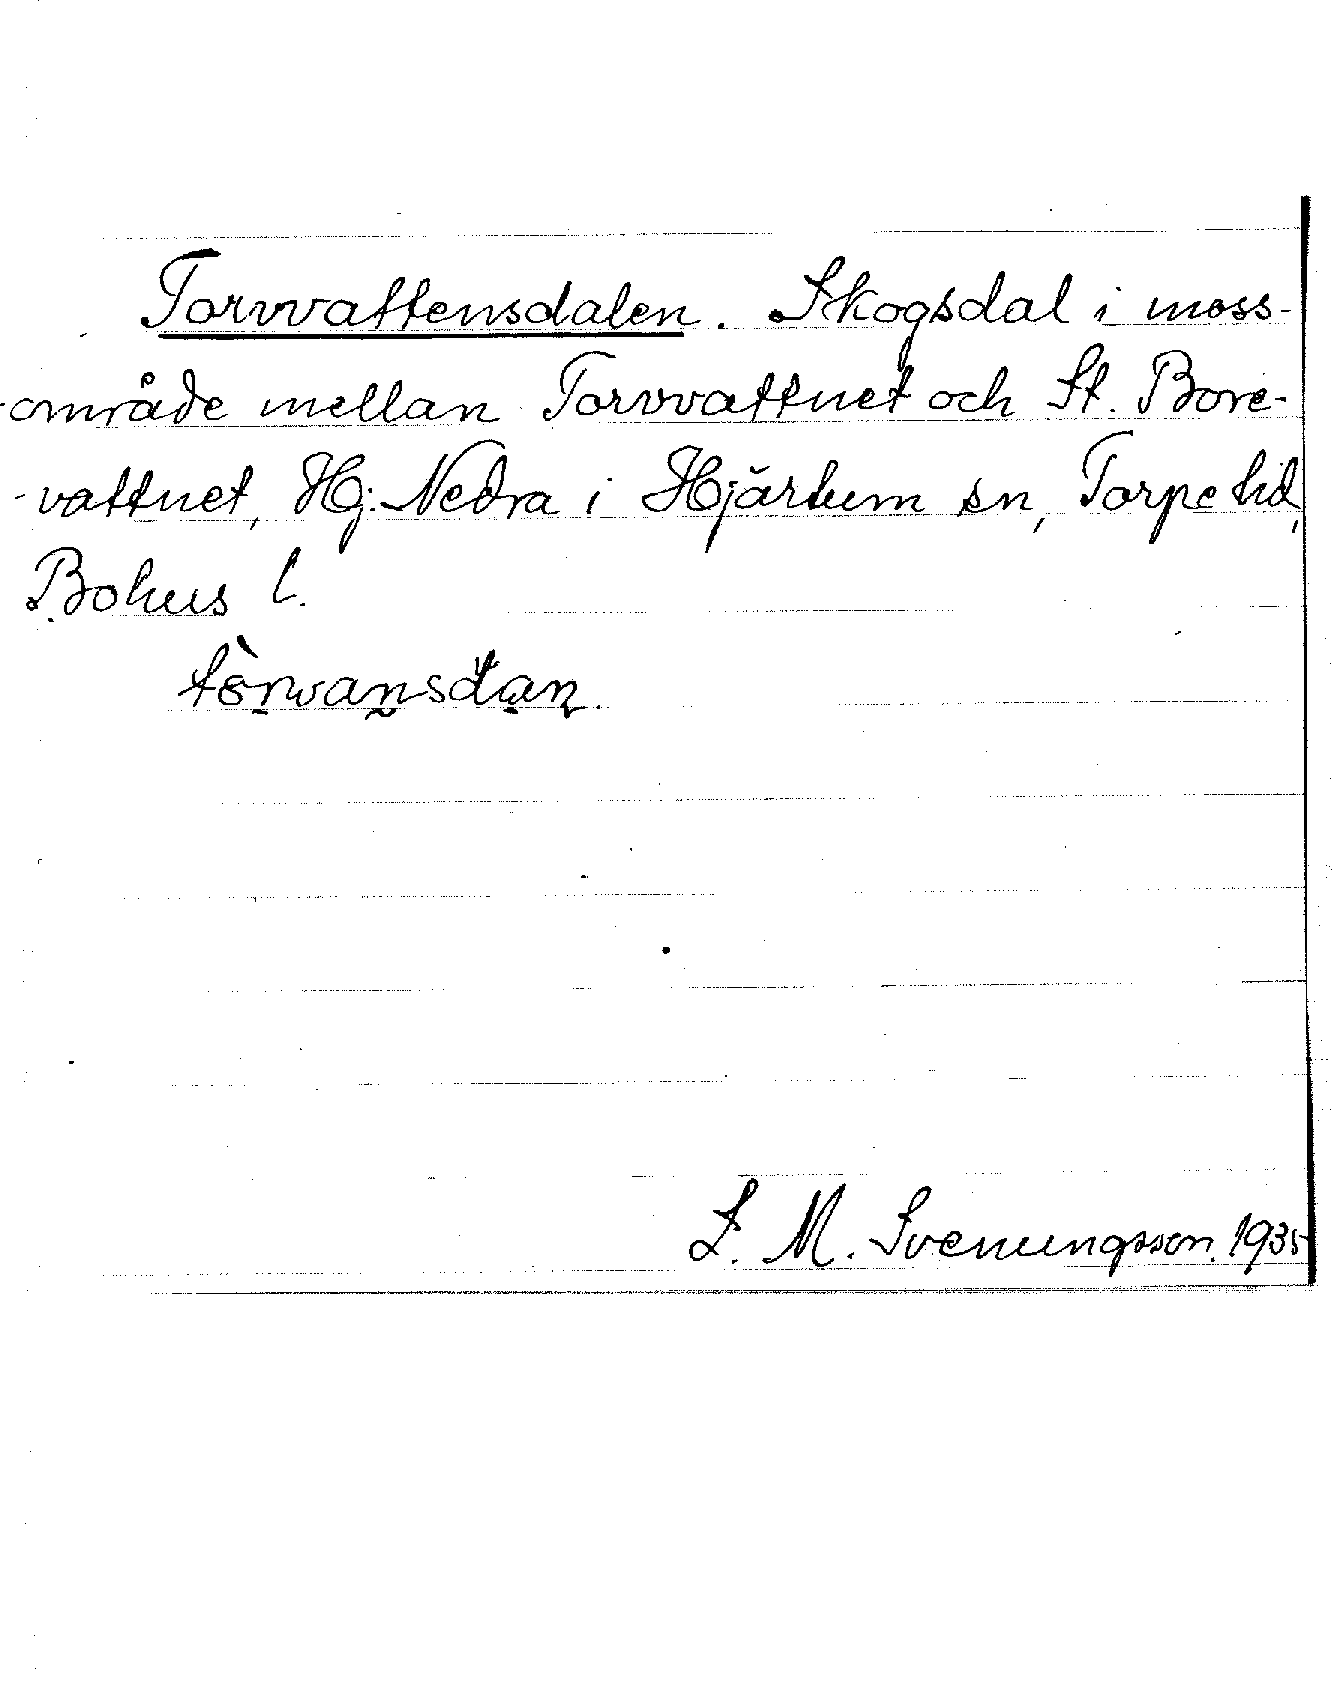 Torvvattensdalen. Skogsdal i moss-
-område mellan Torvvattnet och St. Bore-
-vattnet, Hj. Nedra i Hjärtum sn, Torpe hd,
Bohus l.
L. M. Svenungsson. 1935